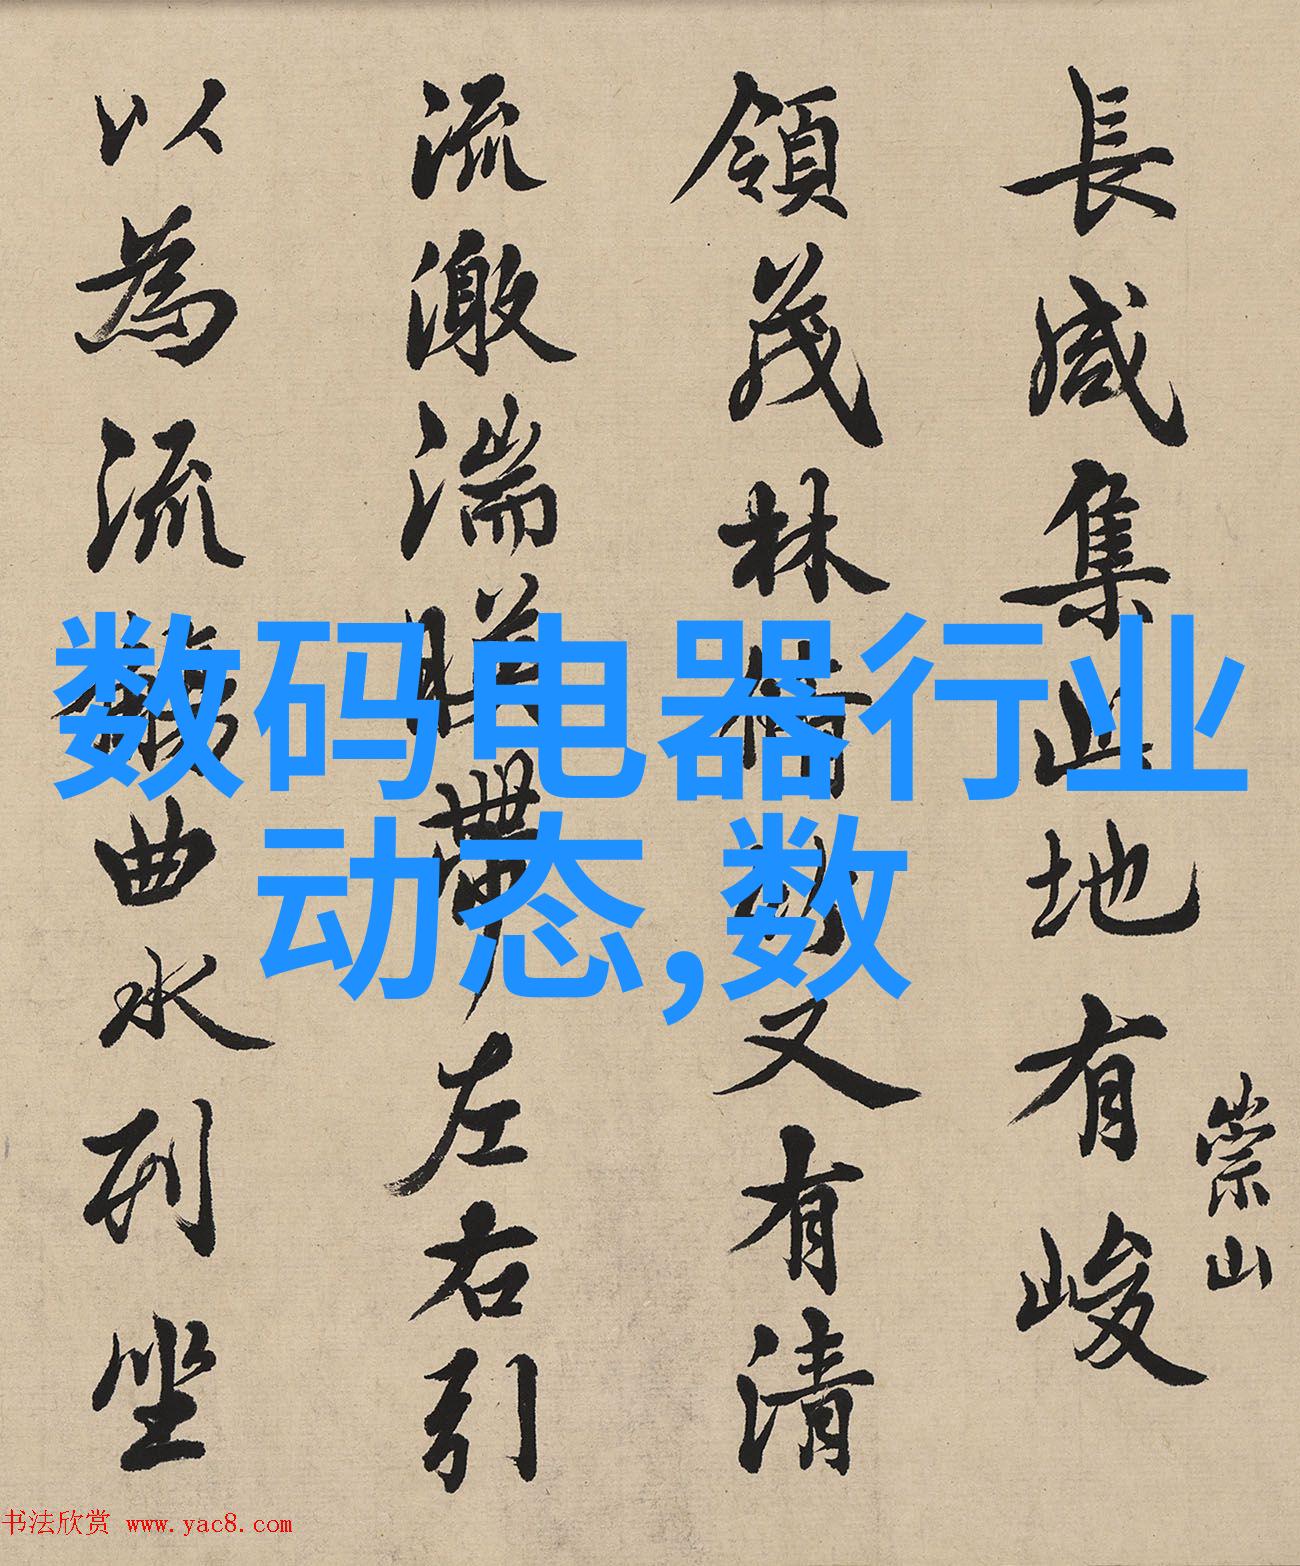 長咸集此地有峻
崇山
領茂林脩竹又有清
流激湍暎帶左右引
以為流觴曲水列坐
数码电器行业
动态,数
书法欣赏 www.yac8.com